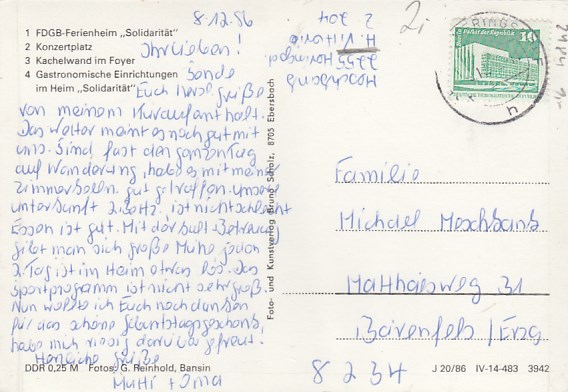 8.12.86
1 FDGB-Ferienheim „Solidarität"
2 Konzertplatz
3 Kachelwand im Foyer
4 Gastronomische Einrichtungen
im Heim „Solidarität"
Ihr Lieben!
Sende
Euch herzl. Grüße
von meinem Kuraufenthalt.
Das Wetter meint es noch gut mit
uns. Sind fast den ganzen Tag
auf Wanderung, habe es mit meiner
Zimmerkollen. gut getroffen. unsere
unterkunft 2 Bettz. ist nicht schlecht
Essen ist gut. Mit der Kult. Betreuung
gibt man sich große Mühe jeden
2. Tag ist im Heim etwas los. Das
Sportprogramm ist nicht sehr groß.
Nun wollte ich Euch noch danken
für das schöne Geburtstagsgeschenk,
habe mich riesig darüber gefreut.
Herzliche Grüße
Mutti + Oma
DDR 0,25 M Fotos: G. Reinhold, Bansin
Foto- und Kunstverlag Bruno Scholz, 8705 Ebersbach
Moschbans
2255
H.
Z 304
2,-
10
h
Familie
Michael Moschbans
Matthäsweg 31
Bärenfels / Erzg
8234
J 20/86 IV-14-483 3942